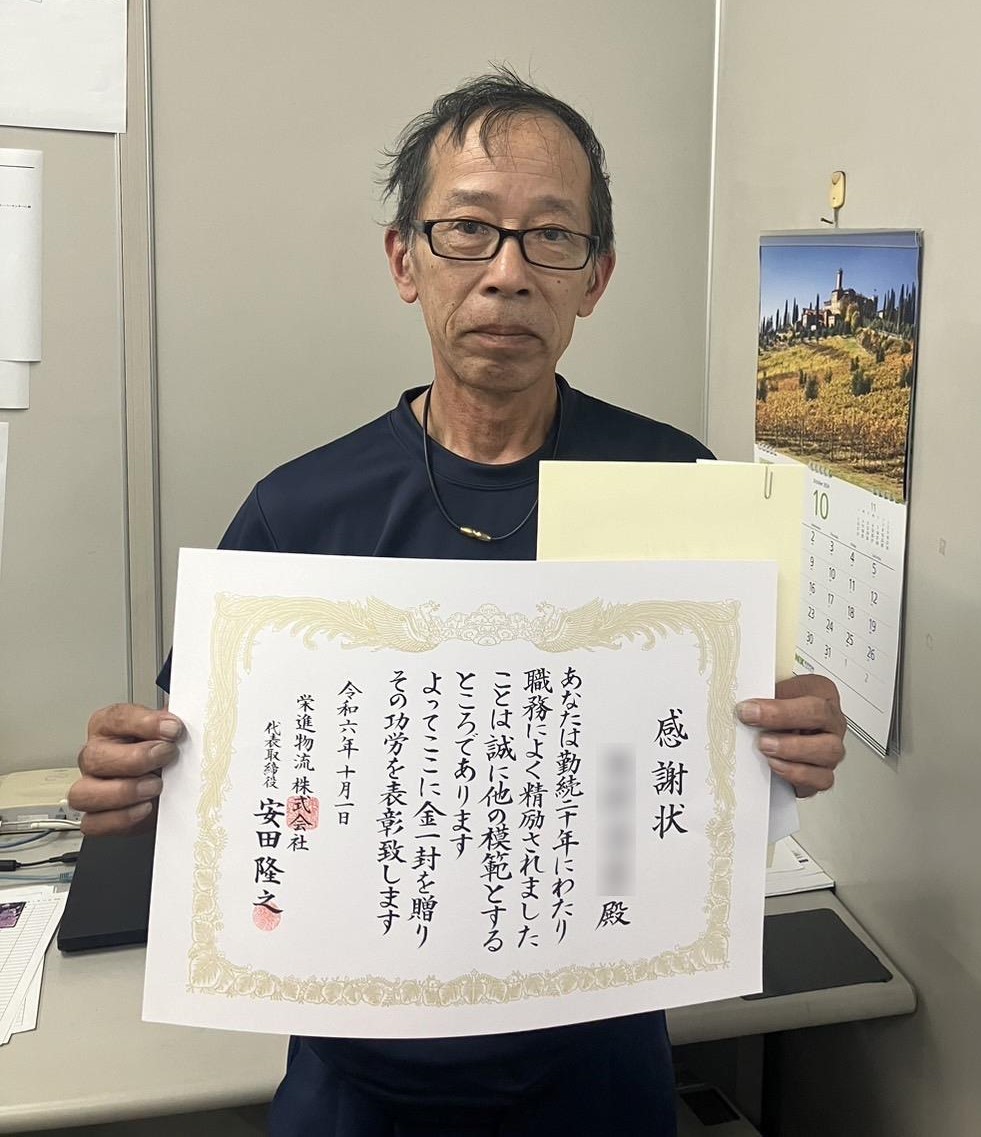 感謝状
殿
あなたは勤続二十年にわたり
職務によく精励されました
ことは誠に他の模範とする
ところであります
よってここに金一封を贈り
その功労を表彰致します
令和六年十月一日
栄進物流 株式会社
代表取締役 安田隆之
October 2024
10
11
2 3 4 5
9 10 11 12
16 17 18 19
23 24 25 26
30 31 1 2